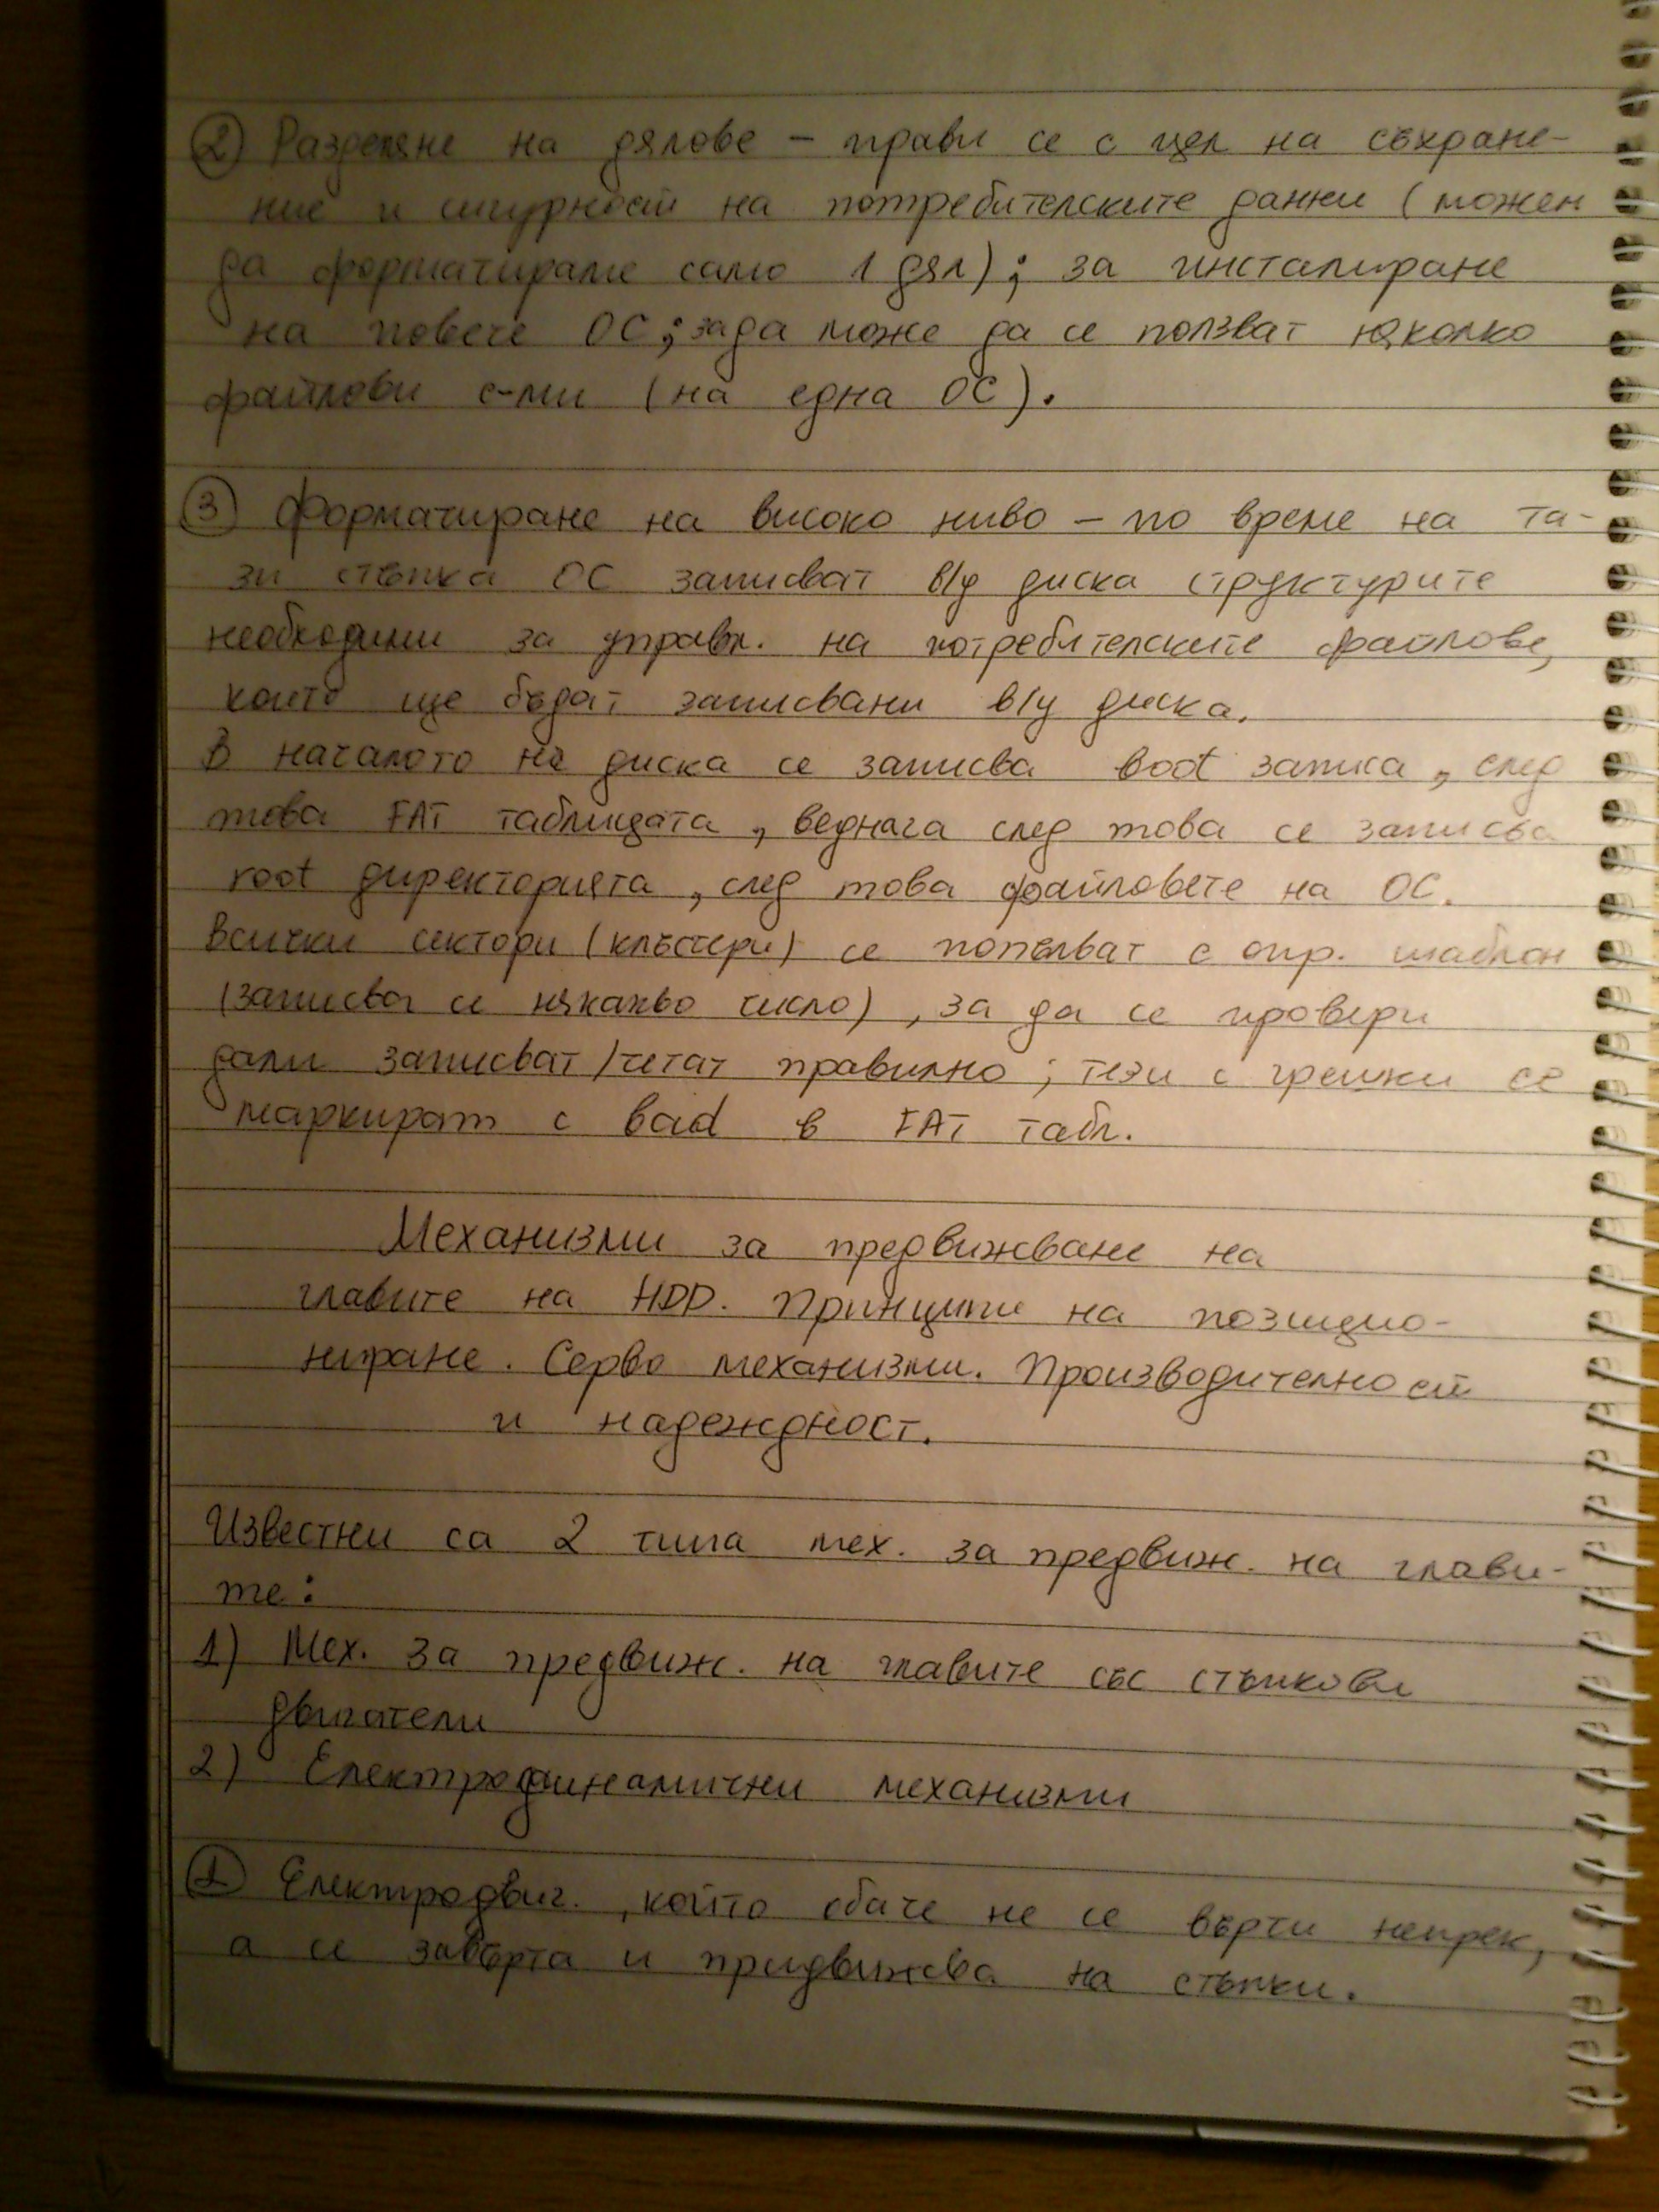 ② Разделяне на дялове – прави се с цел на съхране-
ние и сигурност на потребителските данни (можем
да форматираме само 1 дял); за инсталиране
на повече ОС; за да може да се ползват няколко
файлови с-ми (на една ОС).
③ Форматиране на високо ниво – по време на та-
зи стъпка ОС записват в/у диска структурите
необходими за управл. на потребителските файлове,
които ще бъдат записвани в/у диска.
В началото на диска се записва boot записа, след
това FAT таблицата, веднага след това се записва
root директорията, след това файловете на ОС.
Всички сектори (клъстери) се попълват с опр. шаблон
(записва се някакво число), за да се провери
дали записват/четат правилно; тези с грешки се
маркират с bad в FAT табл.
Механизми за предвижване на
главите на HDD. Принципи на позицио-
ниране. Серво механизми. Производителност
и надеждност.
Известни са 2 типа мех. за предвиж. на глави-
те:
1) Мех. за предвиж. на главите със стъпкови
двигатели
2) Електродинамични механизми
① Електродвиг., който обаче не се върти непрек,
а се завърта и придвижва на стъпки.